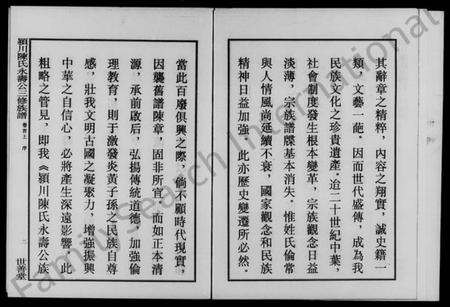 其辭章之精粹，內容之翔實，誠史籍一
類，文藝一葩。因而世代盛傳，成為我
民族文化之珍貴遺產。迨二十世紀中葉，
社會制度發生根本變革，宗族觀念日益
淡薄，宗族譜牒基本消失。惟姓氏倫常
與人情風尚延續不衰，國家觀念和民族
精神日益加強。此亦歷史變遷所必然。
當此百廢俱興之際，倘不顧時代現實，
因襲舊譜陳章，固非所宜。而如正本清
源，承前啟后，弘揚傳統道德，加強倫
理教育，則于激發炎黃子孫之民族自尊
感，壯我文明古國之凝聚力，增強振興
中華之自信心，必將產生深遠影響。此
粗略之管見，即我《潁川陳氏永壽公族
潁川陳氏永壽公三修族譜 卷首上 序
二 世善堂
FamilySearch International